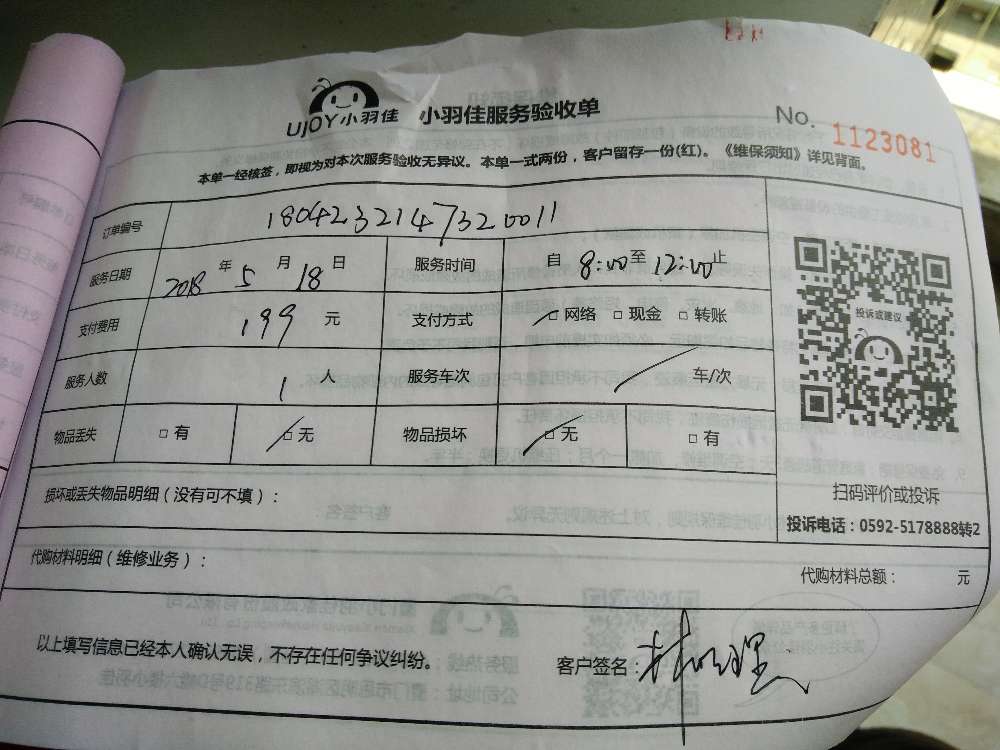 UJOY小羽佳 小羽佳服务验收单 No. 1123081
本单一经核签，即视为对本次服务验收无异议。本单一式两份，客户留存一份(红)。《维保须知》详见背面。
订单编号 1804232147320011
服务日期 2018 年 5 月 18 日 服务时间 自 8:00 至 12:00 止
支付费用 199 元 支付方式 □ 网络 □ 现金 □ 转账
服务人数 1 人 服务车次 车/次
物品丢失 □ 有 □ 无 物品损坏 □ 无 □ 有
投诉或建议
扫码评价或投诉
投诉电话：0592-5178888转2
损坏或丢失物品明细（没有可不填）：
代购材料明细（维修业务）： 代购材料总额： 元
以上填写信息已经本人确认无误，不存在任何争议纠纷。 客户签名：